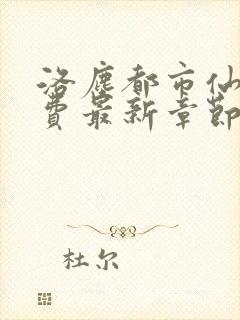 洛塵都市仙
費最新章節
杜尔